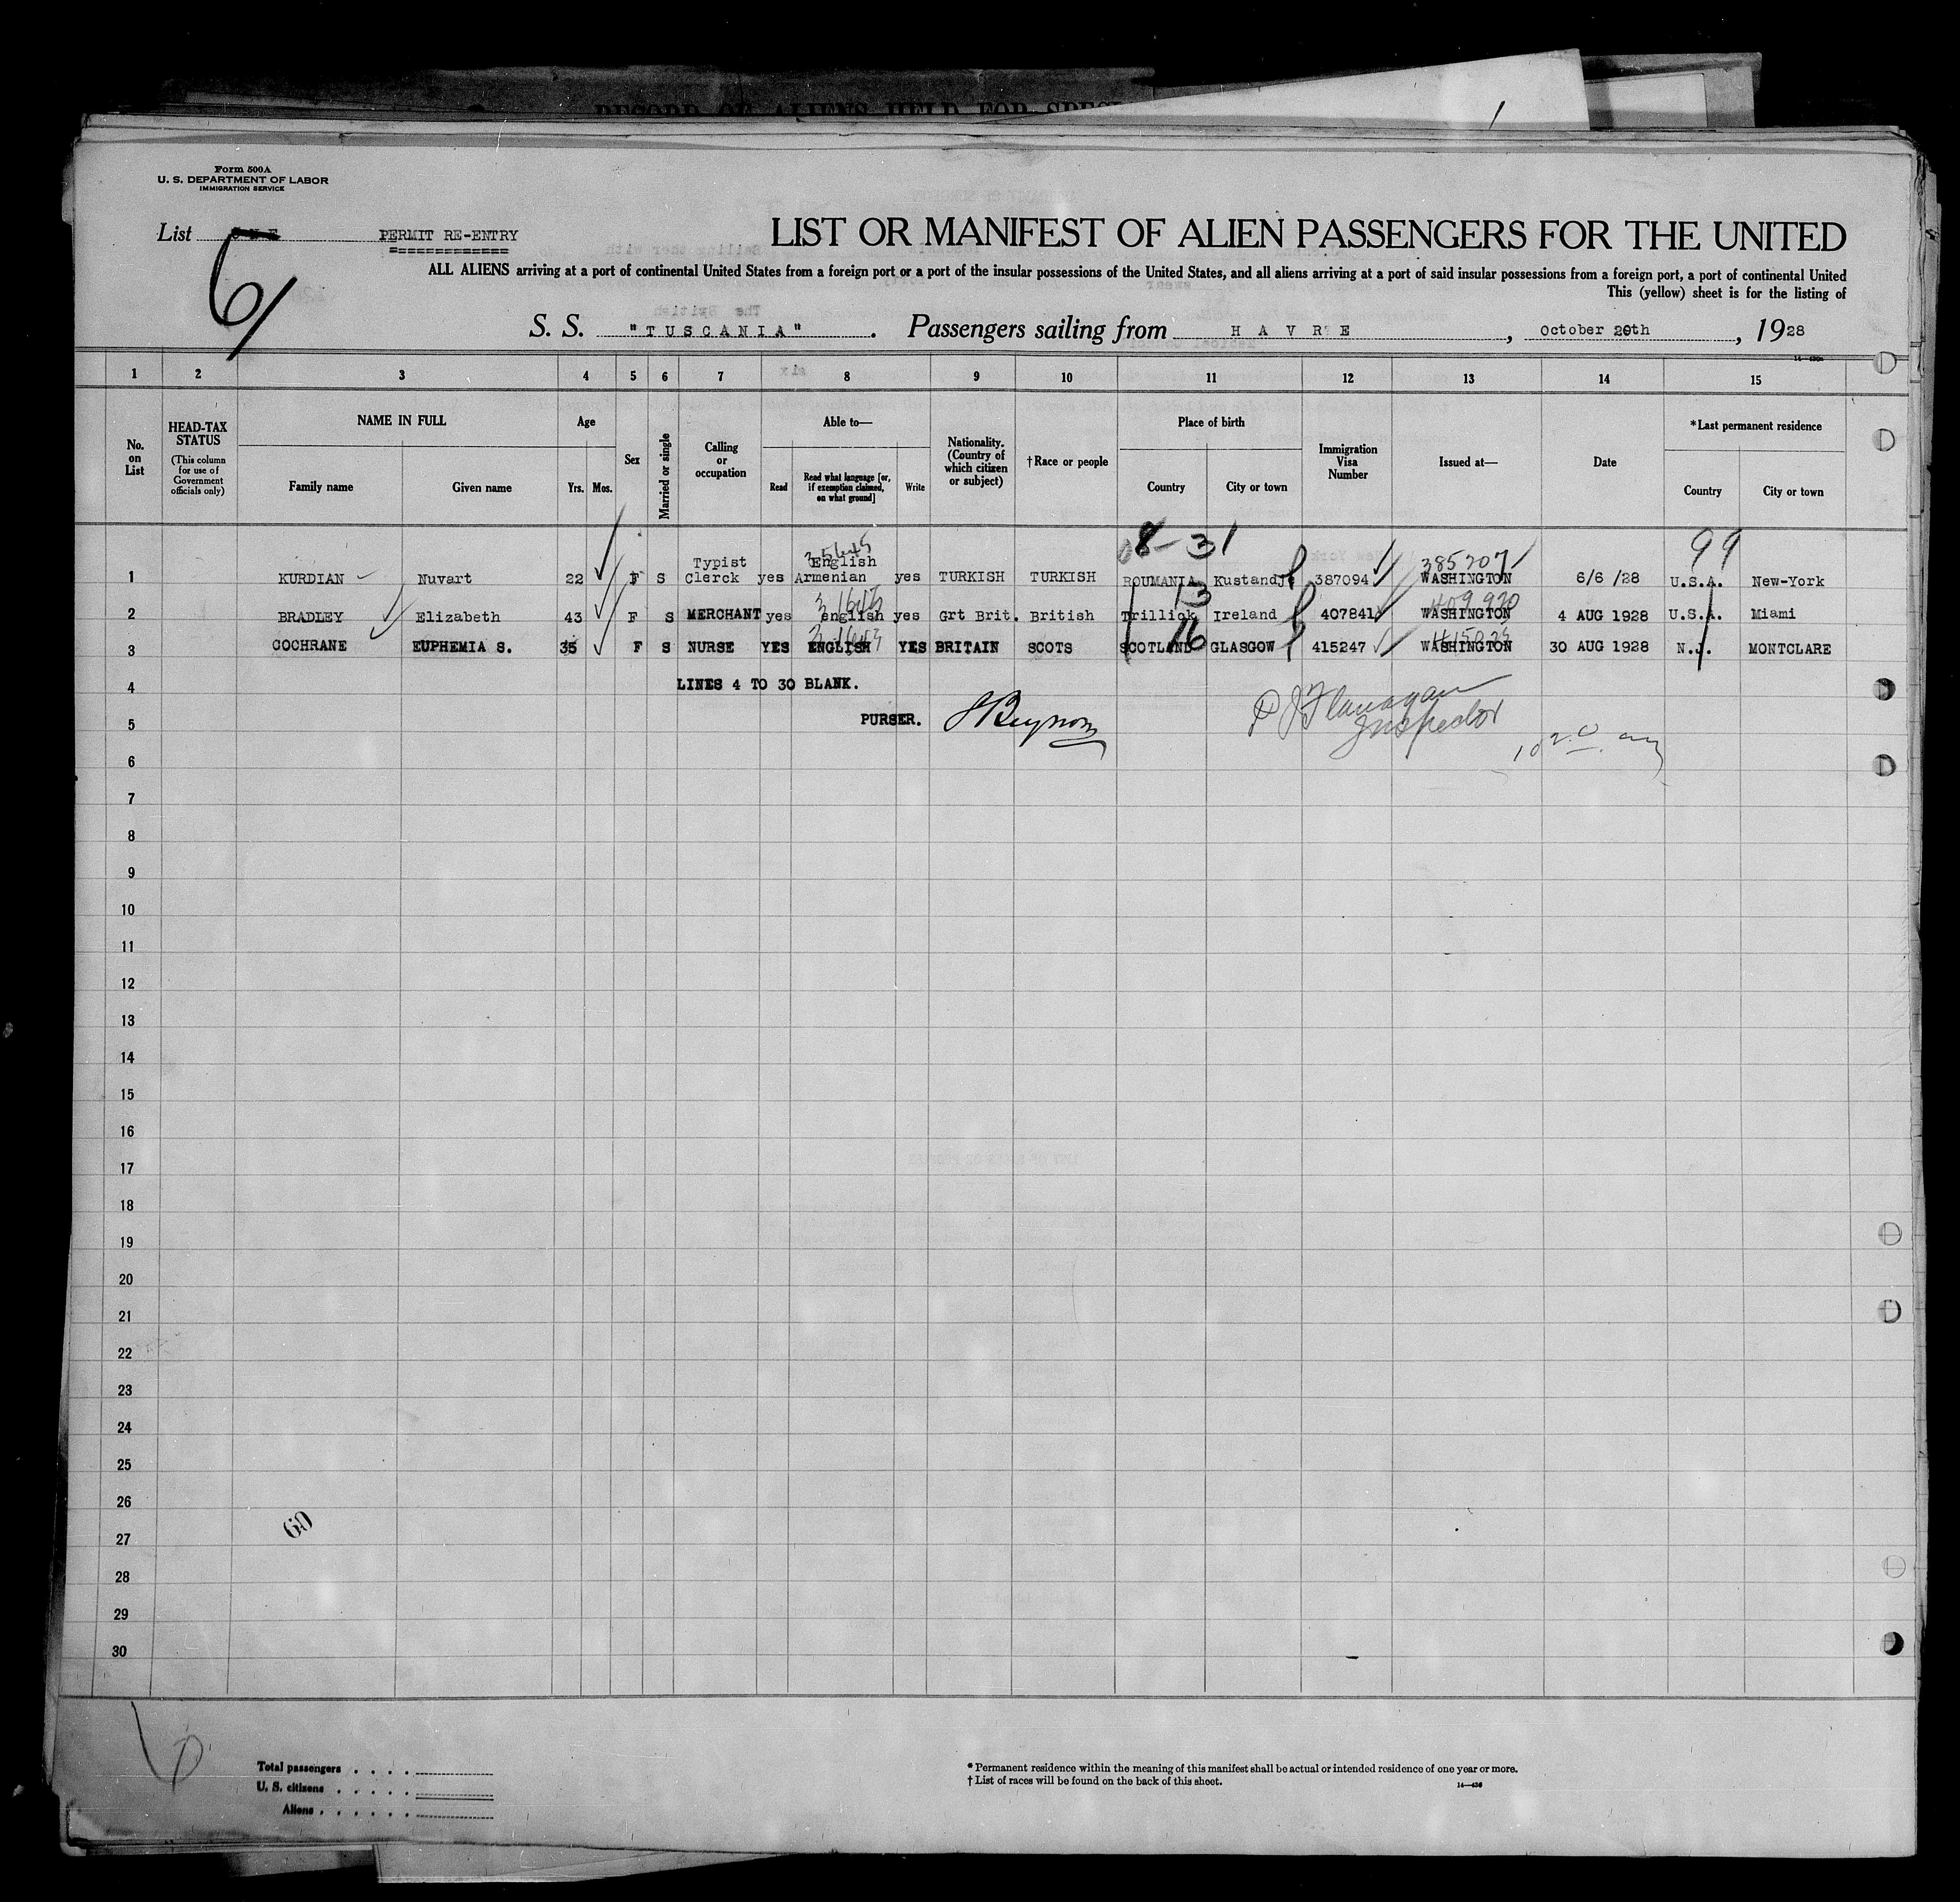 RECORD OF ALIENS HELD FOR SPECI
Form 500A
U. S. DEPARTMENT OF LABOR
IMMIGRATION SERVICE
List ONE PERMIT RE-ENTRY
============
6
LIST OR MANIFEST OF ALIEN PASSENGERS FOR THE UNITED
ALL ALIENS arriving at a port of continental United States from a foreign port or a port of the insular possessions of the United States, and all aliens arriving at a port of said insular possessions from a foreign port, a port of continental United
This (yellow) sheet is for the listing of
S. S. "TUSCANIA". Passengers sailing from HAVRE, October 20th, 1928
1 2 3 4 5 6 7 8 9 10 11 12 13 14 15
No. on List
HEAD-TAX STATUS (This column for use of Government officials only)
NAME IN FULL
Family name Given name
Age
Yrs. Mos.
Sex
Married or single
Calling or occupation
Able to—
Read Read what language [or, if exemption claimed, on what ground] Write
Nationality. (Country of which citizen or subject)
†Race or people
Place of birth
Country City or town
Immigration Visa Number
Issued at—
Date
*Last permanent residence
Country City or town
8-31 99
35645 385207
1 KURDIAN Nuvart 22 F S Typist Clerck yes English Armenian yes TURKISH TURKISH ROUMANIA Kustandje 387094 WASHINGTON 6/6 /28 U.S.A. New-York
31645 13 409920
2 BRADLEY Elizabeth 43 F S MERCHANT yes english yes Grt Brit. British Trillick Ireland 407841 WASHINGTON 4 AUG 1928 U.S.A. Miami
16
3 COCHRANE EUPHEMIA S. 35 F S NURSE YES ENGLISH YES BRITAIN SCOTS SCOTLAND GLASGOW 415247 WASHINGTON 30 AUG 1928 N.J. MONTCLARE
4 LINES 4 TO 30 BLANK.
5 PURSER. P J Flanagan
Inspector
6
7
8
9
10
11
12
13
14
15
16
17
18
19
20
21
22
23
24
25
26
27
60
28
29
30
Total passengers . . . .
U. S. citizens . . . . .
Aliens . . . . . .
* Permanent residence within the meaning of this manifest shall be actual or intended residence of one year or more.
† List of races will be found on the back of this sheet.
14—436